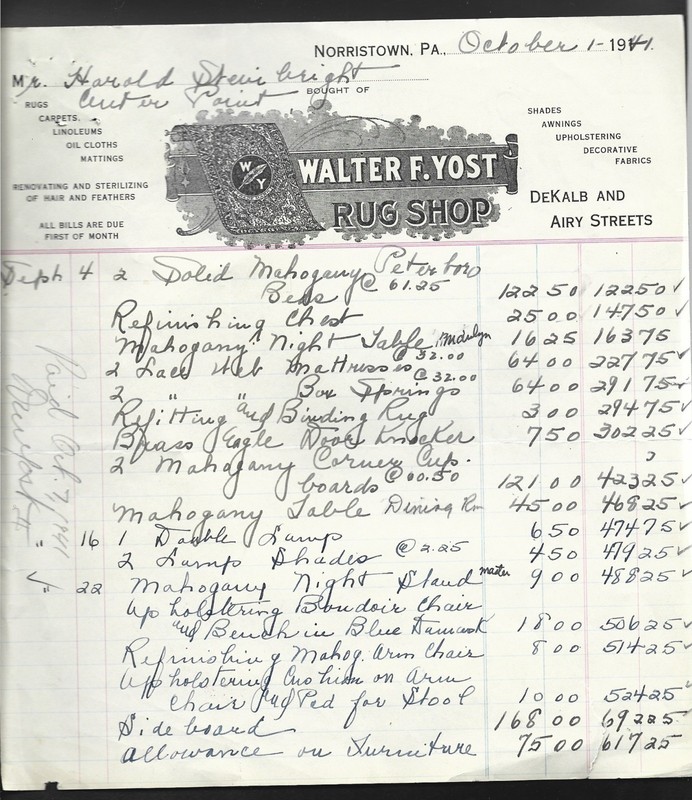 NORRISTOWN, PA., October 1- 1941.
Mr. Harold Steinbright
Center Point
BOUGHT OF
RUGS
CARPETS,
LINOLEUMS
OIL CLOTHS
MATTINGS
RENOVATING AND STERILIZING
OF HAIR AND FEATHERS
ALL BILLS ARE DUE
FIRST OF MONTH
W Y
WALTER F. YOST
RUG SHOP
SHADES
AWNINGS
UPHOLSTERING
DECORATIVE
FABRICS
DEKALB AND
AIRY STREETS
Sept 4 2 Solid Mahogany Peterboro
Beds @ 61.25 122 50 122 50 ✓
Refinishing Chest 25 00 147 50 ✓
Mahogany Night Table Marilyn 16 25 163 75
2 Lace Web Mattresses @ 32.00 64 00 227 75 ✓
2 " " Box Springs @ 32.00 64 00 291 75 ✓
Refitting and Binding Rug 3 00 294 75 ✓
Brass Eagle Door Knocker 7 50 302 25 ✓
2 Mahogany Corner Cup-
boards @ 60.50 121 00 423 25 ✓
Mahogany Table Dining Rm 45 00 468 25 ✓
" 16 1 Double Lamp 6 50 474 75 ✓
2 Lamp Shades @ 2.25 4 50 479 25 ✓
" 22 Mahogany Night Stand master 9 00 488 25 ✓
Upholstering Boudoir Chair
and Bench in Blue Damask 18 00 506 25 ✓
Refinishing Mahog. Arm Chair 8 00 514 25 ✓
Upholstering Cushion on Arm
Chair and Pad for Stool 10 00 524 25 ✓
Sideboard 168 00 692 25 ✓
allowance on Furniture 75 00 617 25
Paid Oct. 7/1941